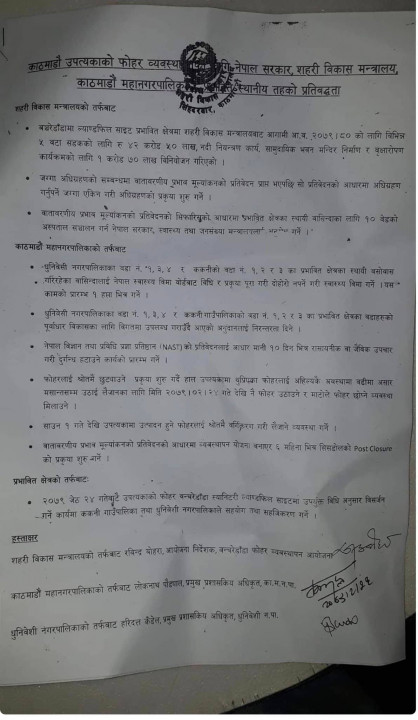 काठमाडौं उपत्यकाको फोहर व्यवस्थापनका लागि नेपाल सरकार, शहरी विकास मन्त्रालय,
काठमाडौं महानगरपालिका स्थानीय तहको प्रतिवद्धता
शहरी विकास मन्त्रालयको तर्फबाट
• बञ्चरेडाँडामा ल्याण्डफिल साइट प्रभावित क्षेत्रमा शहरी विकास मन्त्रालयबाट आगामी आ.व. २०७९।८० को लागि विभिन्न
५ वटा सडकको लागि रु ४२ करोड ५० लाख, नदी नियन्त्रण कार्य, सामुदायिक भवन मन्दिर निर्माण र वृक्षारोपण
कार्यक्रमको लागि १ करोड ७० लाख विनियोजन गरिएको ।
• जग्गा अधिग्रहणको सम्बन्धमा वातावरणीय प्रभाव मूल्यांकनको प्रतिवेदन प्राप्त भएपछि सो प्रतिवेदनको आधारमा अधिग्रहण
गर्नुपर्ने जग्गा एकिन गरी अधिग्रहणको प्रक्रया शुरु गर्ने ।
• वातावरणीय प्रभाव मूल्यांकनको प्रतिवेदनको सिफारिसको आधारमा प्रभावित क्षेत्रका स्थायी वासिन्दाका लागि १० बेडको
अस्पताल संचालन गर्न नेपाल सरकार, स्वास्थ्य तथा जनसंख्या मन्त्रालयलाई गर्ने ।
काठमाडौं महानगरपालिकाको तर्फबाट
• धुनिवेसी नगरपालिकाका वडा नं. १, ३, ४ र ककनीको वडा नं. १, २ र ३ का प्रभावित क्षेत्रका स्थायी बसोवास
गरिरहेका वासिन्दालाई नेपाल स्वास्थ्य विमा बोर्डबाट विधि र प्रकृया पूरा गरी दोहोरो नपर्ने गरी स्वास्थ्य विमा गर्ने । यस
कामको प्रारम्भ १ हप्ता भित्र गर्ने ।
• धुनिवेसी नगरपालिकाका वडा नं. १, ३, ४ र ककनीगाउँपालिकाको वडा नं. १, २ र ३ का प्रभावित क्षेत्रका वडाहरुको
पूर्वाधार विकासका लागि विगतमा उपलब्ध गराउँदै आएको अनुदानलाई निरन्तरता दिने ।
• नेपाल विज्ञान तथा प्रविधि प्रज्ञा प्रतिष्ठान (NAST) को प्रतिवेदनलाई आधार मानी १० दिन भित्र रासायनिक वा जैविक उपचार
गरी दुर्गन्ध हटाउने कार्यको प्रारम्भ गर्ने ।
• फोहरलाई श्रोतमै छुट्याउने प्रकृया शुरु गर्दै हाल उपत्यकामा थुप्रिएका फोहरलाई अहिल्यकै अवस्थामा बढीमा असार
मसान्तसम्म उठाई लैजानका लागि मिति २०७९।०२।२४ गते देखि नै फोहर उठाउने र माटोले फोहर छोप्ने व्यवस्था
मिलाउने ।
• साउन १ गते देखि उपत्यकामा उत्पादन हुने फोहरलाई श्रोतमै वर्गीकरण गरी लैजाने व्यवस्था गर्ने ।
• वातावरणीय प्रभाव मूल्यांकनको प्रतिवेदनको आधारमा व्यवस्थापन योजना बनाएर ६ महिना भित्र सिसडोलको Post Closure
को प्रकृया शुरु गर्ने ।
प्रभावित क्षेत्रको तर्फबाटः
• २०७९ जेठ २४ गतेबाटै उपत्यकाको फोहर बञ्चरेडाँडा स्यानिटरी ल्याण्डफिल साइटमा उपयुक्त विधि अनुसार विसर्जन
गर्ने कार्यमा ककनी गाउँपालिका तथा धुनिवेशी नगरपालिकाले सहयोग तथा सहजिकरण गर्ने ।
हस्ताक्षर
शहरी विकास मन्त्रालयको तर्फबाट रविन्द्र बोहरा, आयोजना निर्देशक, बन्चरेडाँडा फोहर व्यवस्थापन आयोजना
काठमाडौं महानगरपालिकाको तर्फबाट लोकनाथ पौड्याल, प्रमुख प्रशासकिय अधिकृत, का.म.न.पा.
धुनिवेशी नगरपालिकाको तर्फबाट हरिदत्त कँडेल, प्रमुख प्रशासकिय अधिकृत, धुनिवेशी न.पा.